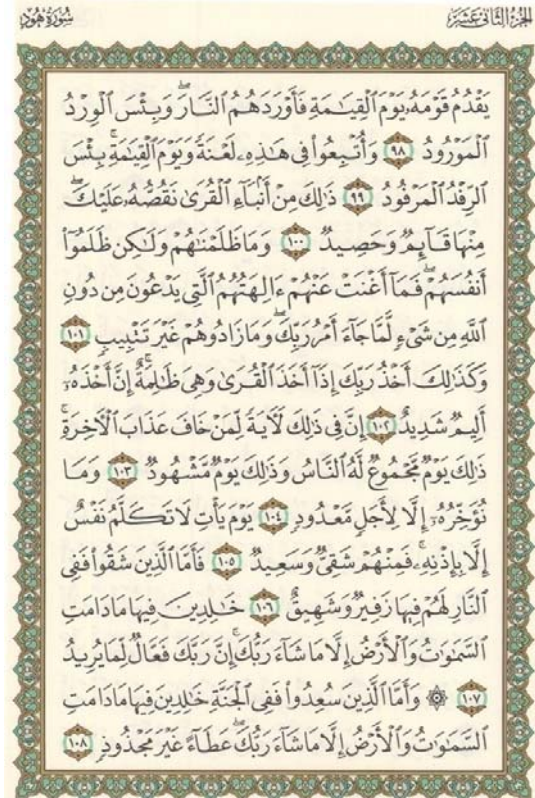 الجزء الثاني عشر
سورة هود
يَقْدُمُ قَوْمَهُۥ يَوْمَ ٱلْقِيَٰمَةِ فَأَوْرَدَهُمُ ٱلنَّارَۖ وَبِئْسَ ٱلْوِرْدُ
ٱلْمَوْرُودُ ٩٨ وَأُتْبِعُوا۟ فِى هَٰذِهِۦ لَعْنَةً وَيَوْمَ ٱلْقِيَٰمَةِۚ بِئْسَ
ٱلرِّفْدُ ٱلْمَرْفُودُ ٩٩ ذَٰلِكَ مِنْ أَنۢبَآءِ ٱلْقُرَىٰ نَقُصُّهُۥ عَلَيْكَۖ
مِنْهَا قَآئِمٌ وَحَصِيدٌ ١٠٠ وَمَا ظَلَمْنَٰهُمْ وَلَٰكِن ظَلَمُوٓا۟
أَنفُسَهُمْۖ فَمَآ أَغْنَتْ عَنْهُمْ ءَالِهَتُهُمُ ٱلَّتِى يَدْعُونَ مِن دُونِ
ٱللَّهِ مِن شَىْءٍ لَّمَّا جَآءَ أَمْرُ رَبِّكَۖ وَمَا زَادُوهُمْ غَيْرَ تَتْبِيبٍ ١٠١
وَكَذَٰلِكَ أَخْذُ رَبِّكَ إِذَآ أَخَذَ ٱلْقُرَىٰ وَهِىَ ظَٰلِمَةٌۚ إِنَّ أَخْذَهُۥٓ
أَلِيمٌ شَدِيدٌ ١٠٢ إِنَّ فِى ذَٰلِكَ لَءَايَةً لِّمَنْ خَافَ عَذَابَ ٱلْءَاخِرَةِۚ
ذَٰلِكَ يَوْمٌ مَّجْمُوعٌ لَّهُ ٱلنَّاسُ وَذَٰلِكَ يَوْمٌ مَّشْهُودٌ ١٠٣ وَمَا
نُؤَخِّرُهُۥٓ إِلَّا لِأَجَلٍ مَّعْدُودٍ ١٠٤ يَوْمَ يَأْتِ لَا تَكَلَّمُ نَفْسٌ
إِلَّا بِإِذْنِهِۦۚ فَمِنْهُمْ شَقِىٌّ وَسَعِيدٌ ١٠٥ فَأَمَّا ٱلَّذِينَ شَقُوا۟ فَفِى
ٱلنَّارِ لَهُمْ فِيهَا زَفِيرٌ وَشَهِيقٌ ١٠٦ خَٰلِدِينَ فِيهَا مَا دَامَتِ
ٱلسَّمَٰوَٰتُ وَٱلْأَرْضُ إِلَّا مَا شَآءَ رَبُّكَۚ إِنَّ رَبَّكَ فَعَّالٌ لِّمَا يُرِيدُ
١٠٧ ۞ وَأَمَّا ٱلَّذِينَ سُعِدُوا۟ فَفِى ٱلْجَنَّةِ خَٰلِدِينَ فِيهَا مَا دَامَتِ
ٱلسَّمَٰوَٰتُ وَٱلْأَرْضُ إِلَّا مَا شَآءَ رَبُّكَۖ عَطَآءً غَيْرَ مَجْذُوذٍ ١٠٨